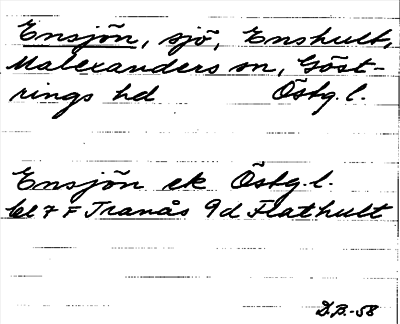 Ensjön, sjö, Enshult,
Malexanders sn, Göst-
rings hd Östg.l.
Ensjön ek Östg.l.
bl 7 F Tranås 9d Flathult
D.B.-58